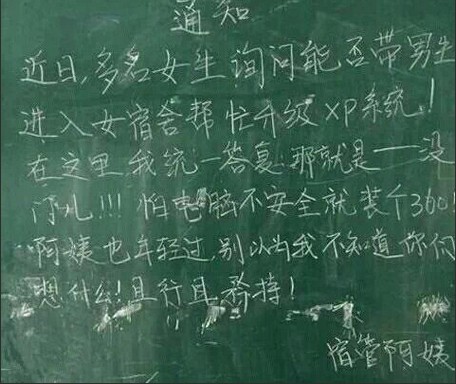 通知
近日,多名女生询问能否带男生
进入女宿舍帮忙升级XP系统!
在这里我统一答复:那就是——没
门儿!!!怕电脑不安全就装个360!
阿姨也年轻过,别以为我不知道你们
想什么!且行且矜持!
宿管阿姨